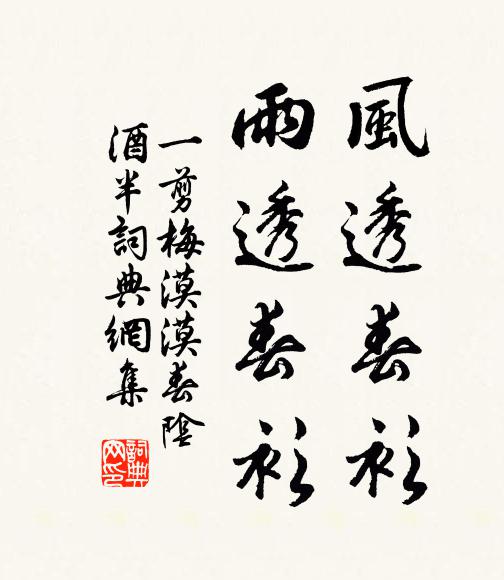 風透春衫
雨透春衫
一剪梅漠漠春陰
酒半詞典網集
詞典網印